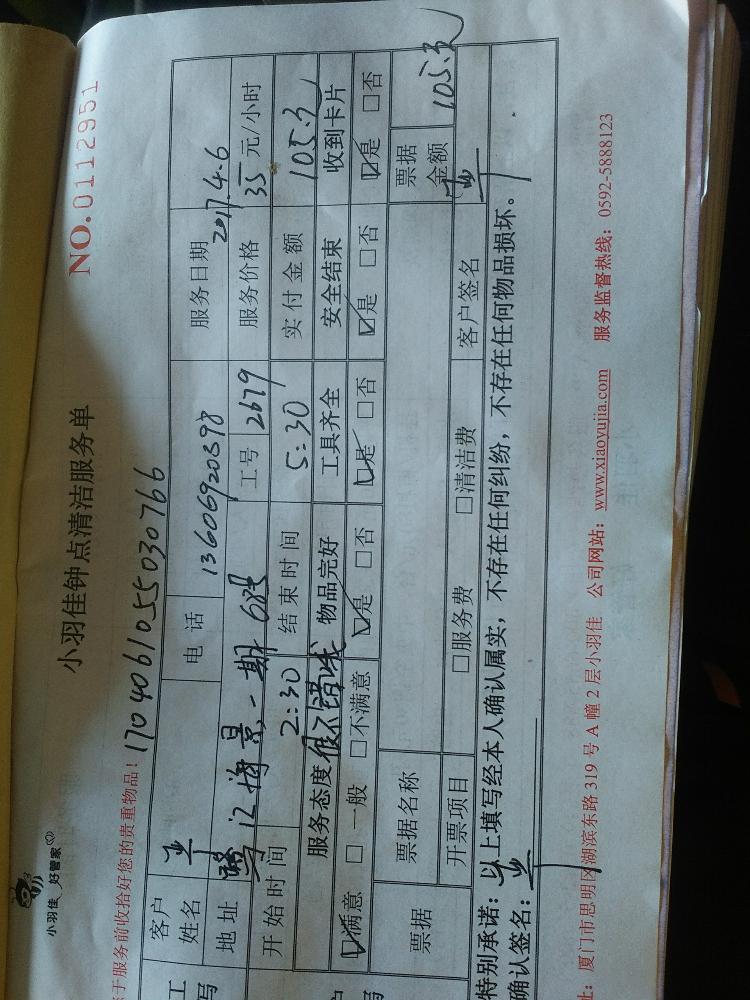 小羽佳 好管家
小羽佳钟点清洁服务单
NO.0112951
于服务前收拾好您的贵重物品! 1704061055030766
客户姓名
电话 13606920398
服务日期 2017.4.6
地址 鹭江海景一期
工号 2679
服务价格 35 元/小时
开始时间 2:30
结束时间 5:30
实付金额 105.元
服务态度 很不错
物品完好
工具齐全
安全结束
收到卡片
☑满意 □一般 □不满意
☑是 □否
☑是 □否
☑是 □否
☑是 □否
票据
票据名称
票据金额 105.元
开票项目
□服务费 □清洁费
客户签名
特别承诺:以上填写经本人确认属实,不存在任何纠纷,不存在任何物品损坏。
确认签名:
址:厦门市思明区湖滨东路319号A幢2层小羽佳 公司网站:www.xiaoyujia.com 服务监督热线:0592-5888123